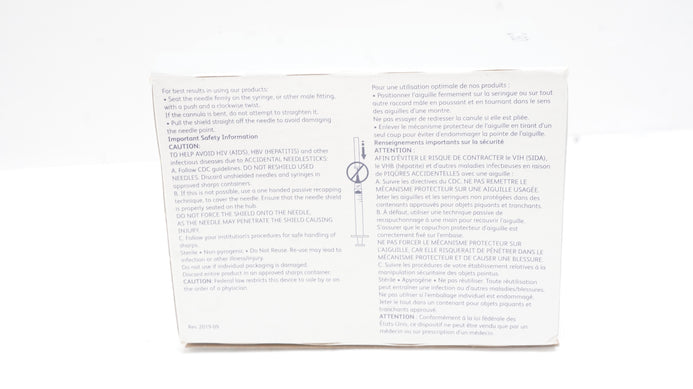 For best results in using our products:
• Seat the needle firmly on the syringe, or other male fitting,
with a push and a clockwise twist.
If the cannula is bent, do not attempt to straighten it.
• Pull the shield straight off the needle to avoid damaging
the needle point.
Important Safety Information
CAUTION:
TO HELP AVOID HIV (AIDS), HBV (HEPATITIS) and other
infectious diseases due to ACCIDENTAL NEEDLESTICKS:
A. Follow CDC guidelines. DO NOT RESHIELD USED
NEEDLES. Discard unshielded needles and syringes in
approved sharps containers.
B. If this is not possible, use a one handed passive recapping
technique, to cover the needle. Ensure that the needle shield
is properly seated on the hub.
DO NOT FORCE THE SHIELD ONTO THE NEEDLE,
AS THE NEEDLE MAY PENETRATE THE SHIELD CAUSING
INJURY.
C. Follow your institution's procedures for safe handling of
sharps.
Sterile • Non-pyrogenic • Do Not Reuse. Re-use may lead to
infection or other illness/injury.
Do not use if individual packaging is damaged.
Discard entire product in an approved sharps container.
CAUTION: Federal law restricts this device to sale by or on
the order of a physician.
Rev. 2019-05
Pour une utilisation optimale de nos produits :
• Positionner l'aiguille fermement sur la seringue ou sur tout
autre raccord mâle en poussant et en tournant dans le sens
des aiguilles d'une montre.
Ne pas essayer de redresser la canule si elle est pliée.
• Enlever le mécanisme protecteur de l'aiguille en tirant d'un
seul coup pour éviter d'endommager la pointe de l'aiguille.
Renseignements importants sur la sécurité
ATTENTION :
AFIN D'ÉVITER LE RISQUE DE CONTRACTER le VIH (SIDA),
le VHB (hépatite) et d'autres maladies infectieuses en raison
de PIQÛRES ACCIDENTELLES avec une aiguille :
A. Suivre les directives du CDC. NE PAS REMETTRE LE
MÉCANISME PROTECTEUR SUR UNE AIGUILLE USAGÉE.
Jeter les aiguilles et les seringues non protégées dans des
contenants approuvés pour objets piquants et tranchants.
B. À défaut, utiliser une technique passive de
recapuchonnage à une main pour recouvrir l'aiguille.
S'assurer que le capuchon protecteur d'aiguille est
correctement fixé sur l'embase.
NE PAS FORCER LE MÉCANISME PROTECTEUR SUR
L'AIGUILLE, CAR ELLE RISQUERAIT DE PÉNÉTRER DANS LE
MÉCANISME PROTECTEUR ET DE CAUSER UNE BLESSURE.
C. Suivre les procédures de votre établissement relatives à la
manipulation sécuritaire des objets pointus.
Stérile • Apyrogène • Ne pas réutiliser. Toute réutilisation
peut entraîner une infection ou d'autres maladies/blessures.
Ne pas utiliser si l'emballage individuel est endommagé.
Jeter le tout dans un contenant pour objets piquants et
tranchants approuvé.
ATTENTION : Conformément à la loi fédérale des
États-Unis, ce dispositif ne peut être vendu que par un
médecin ou sur prescription d'un médecin.